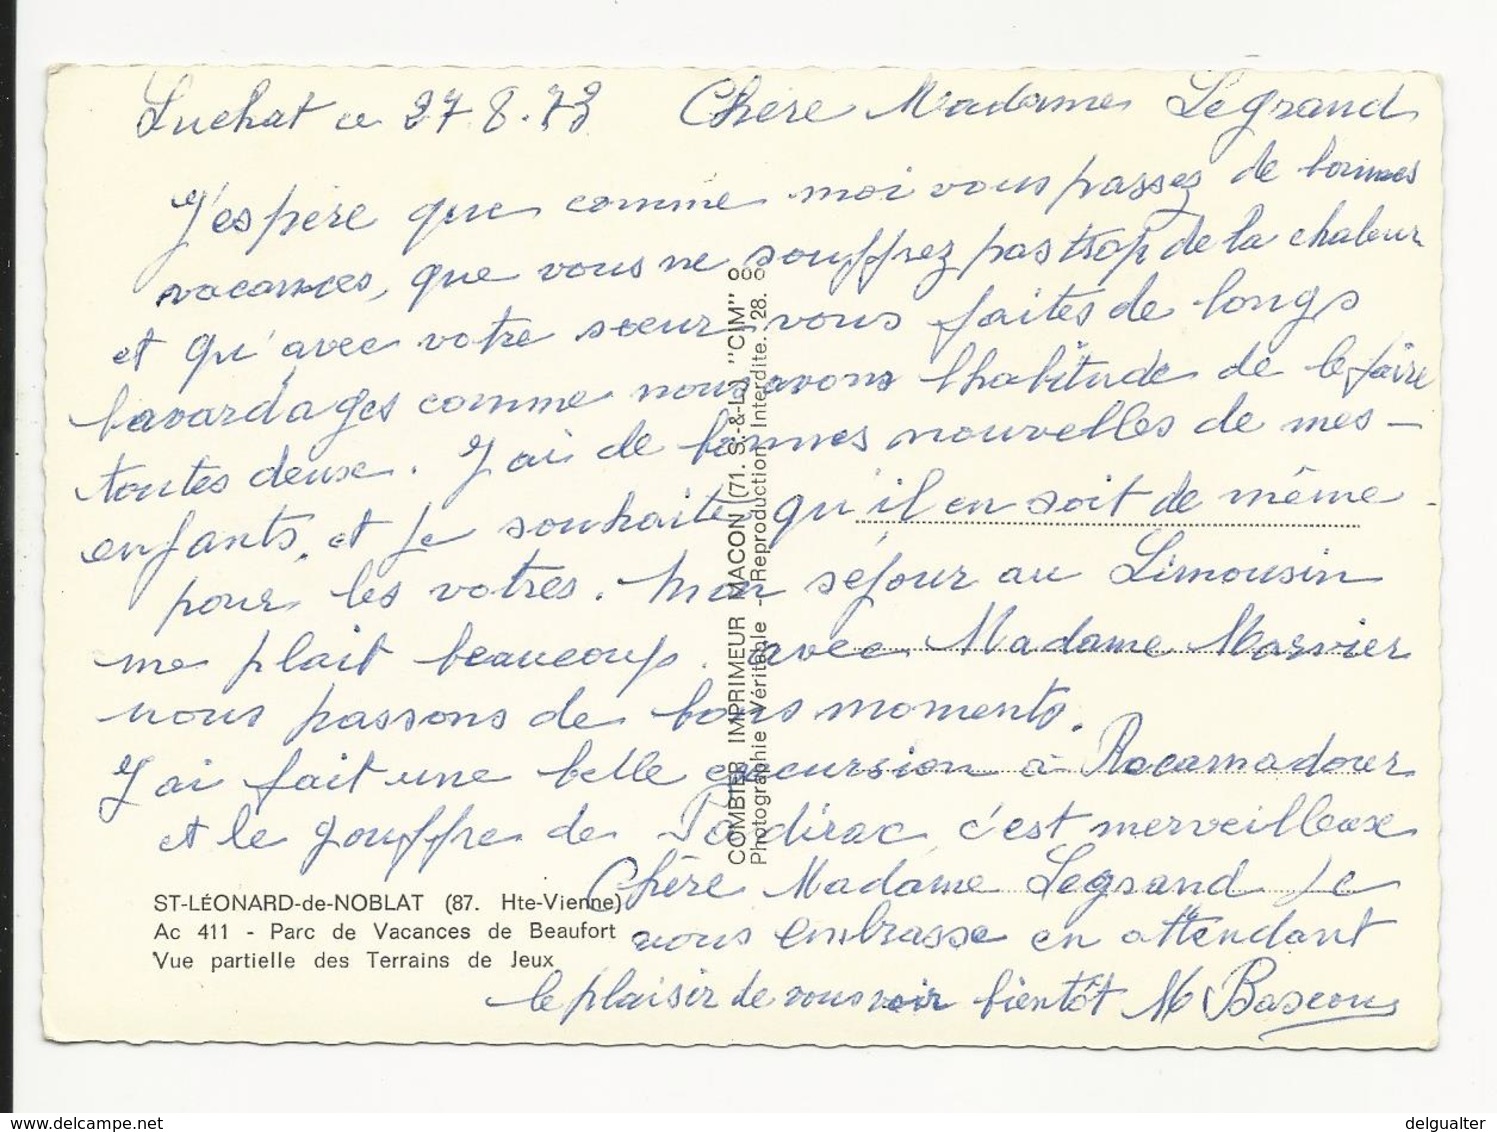 Luchat ce 27.8.73 Chère Madame Legrand
J'espère que comme moi vous passez de bonnes
vacances, que vous ne souffrez pas trop de la chaleur
et qu'avec votre sœur, vous faites de longs
bavardages comme nous avons l'habitude de le faire
toutes deux. J'ai de bonnes nouvelles de mes-
enfants, et je souhaite qu'il en soit de même
pour les votres. Mon séjour au Limousin
me plait beaucoup. avec Madame Marvier
nous passons de bons moments.
J'ai fait une belle excursion à Rocamadour
et le gouffre de Padirac, c'est merveilleux
Chère Madame Legrand je
vous embrasse en attendant
le plaisir de vous voir bientôt M
ST-LÉONARD-de-NOBLAT (87. Hte-Vienne)
Ac 411 - Parc de Vacances de Beaufort
Vue partielle des Terrains de Jeux
COMBIER IMPRIMEUR MACON (71. S.-&-L.) "CIM"
Photographie Véritable - Reproduction Interdite. 28.
delgualter